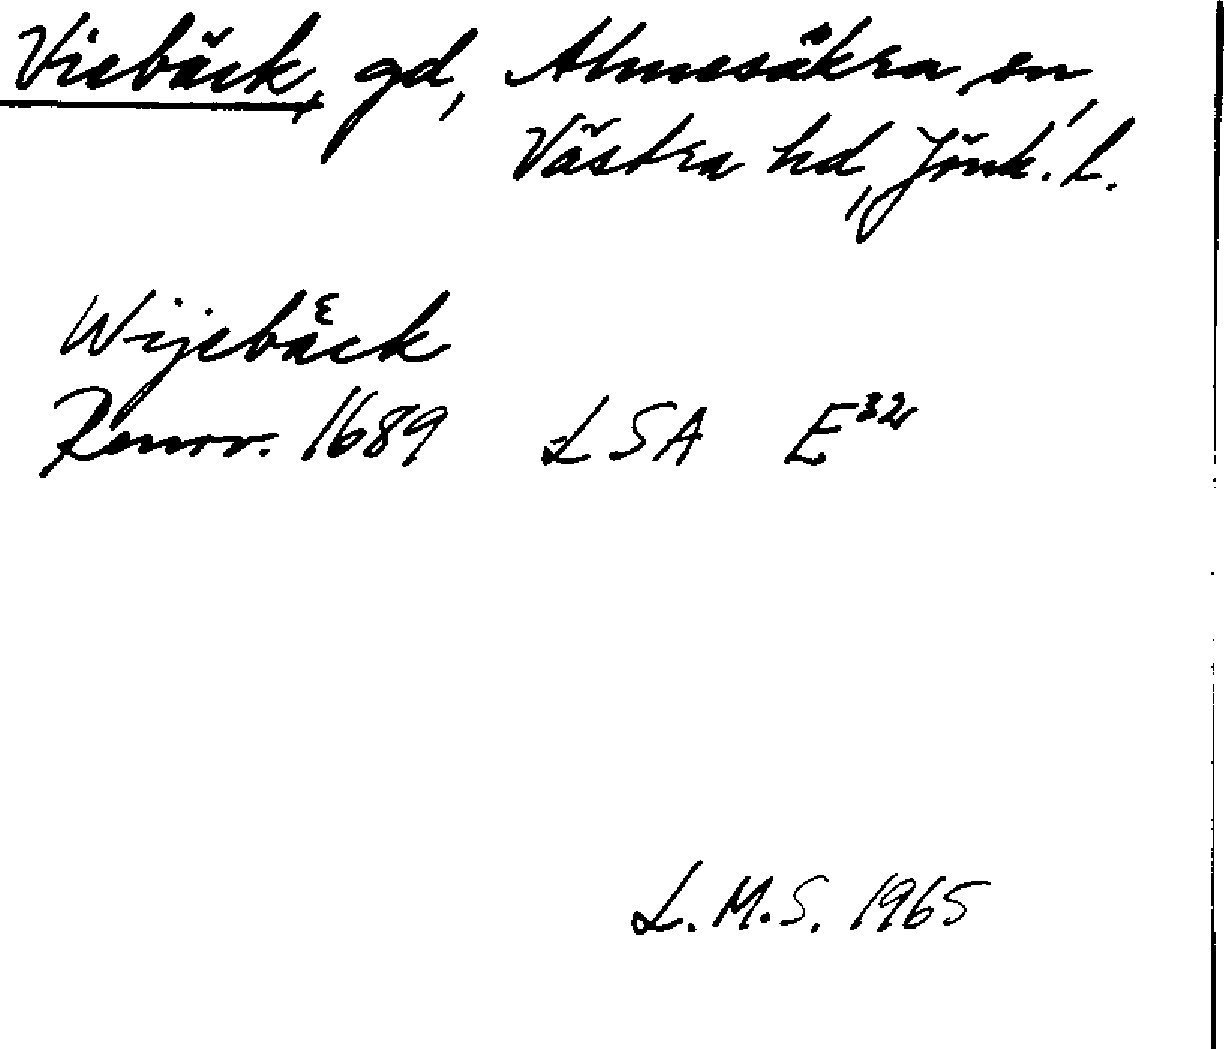 Viebäck, gd, Almesäkra sn,
Västra hd, Jönk. L.
Wijebäck
Renov. 1689 LSA E32
L.M.S. 1965